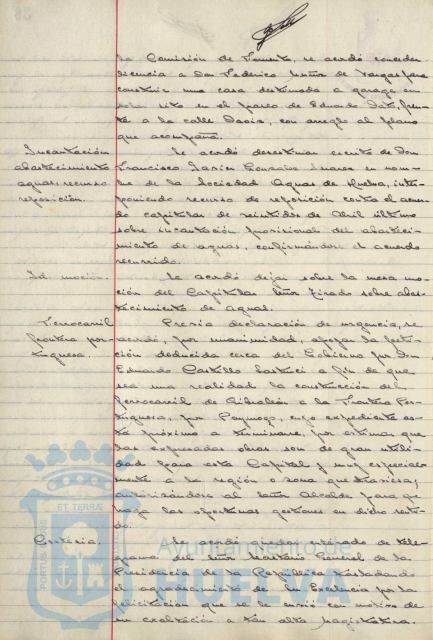 la Comisión de Fomento, se acordó conceder
licencia a Don Federico Muñoz de Vargas para
construir una casa destinada a garage en
solar sito en el paseo de Eduardo Dato, fren-
te a la calle Daoiz, con arreglo al plano
que acompaña.
Incautación
abastecimiento
aguas; recurso
reposición.
Se acordó desestimar escrito de Don
Francisco Javier González Suarez en nom-
bre de la Sociedad Aguas de Huelva, inter-
poniendo recurso de reposición contra el acuer-
do capitular de veintidos de Abril último
sobre incautación provisional del abasteci-
miento de aguas, confirmándose el acuerdo
recurrido.
Id. moción.
Se acordó dejar sobre la mesa mo-
ción del Capitular Señor Tirado sobre abas-
tecimiento de aguas.
Ferrocarril
frontera por-
tuguesa.
Previa declaración de urgencia, se
acordó, por unanimidad, apoyar la peti-
ción deducida cerca del Gobierno por Don
Eduardo Castillo a fin de que
sea una realidad la construcción del
ferrocarril de Gibraleón a la Frontera Por-
tuguesa, por Paymogo, cuyo expediente es-
tá próximo a terminarse, por estimar que
las expresadas obras son de gran utili-
dad para esta Capital y muy especial-
mente a la región o zona que atraviesa;
autorizándose al Señor Alcalde para que
haga las oportunas gestiones en dicho senti-
do.
Cortesía.
Se acordó quedar enterado de tele-
grama del Señor Secretario General de la
Presidencia de la República trasladando
el agradecimiento de Su Excelencia por la
felicitación que se le envió con motivo de
su exaltación a tan alta magistratura.
PORTUS MARIS
ET TERRAE
Ayuntamiento de
HUELVA